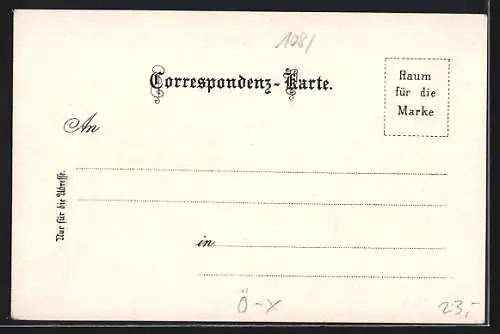 1081
Correspondenz-Karte.
Raum
für die
Marke
An
Nur für die Adresse.
in
Ö-X
23,-